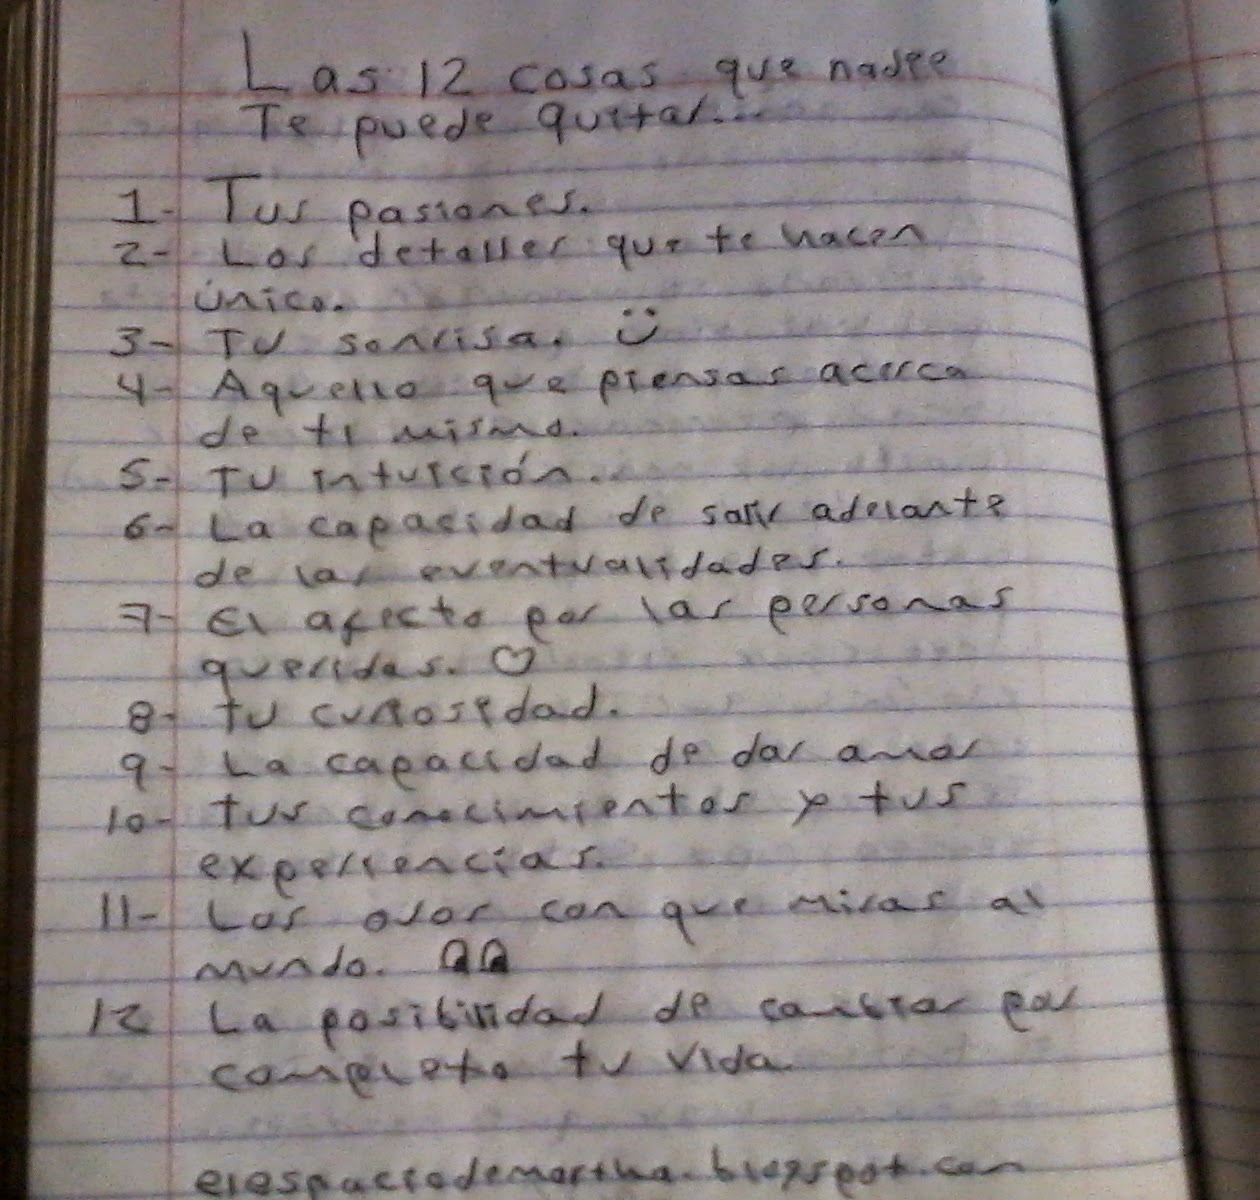 Las 12 cosas que nadie
Te puede quitar...
1- Tus pasiones.
2- Los detalles que te hacen
único.
3- Tu sonrisa. ت
4- Aquello que piensas acerca
de ti mismo.
5- Tu intuición.
6- La capacidad de salir adelante
de las eventualidades.
7- El afecto por las personas
queridas. ♡
8- tu curiosidad.
9- La capacidad de dar amor
10- tus conocimientos y tus
experiencias.
11- Los ojos con que miras al
mundo.
12 La posibilidad de cambiar por
completo tu vida.
elespaciodemartha.blogspot.com